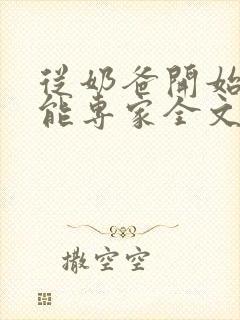 從奶爸開始
能專家全文
撒空空